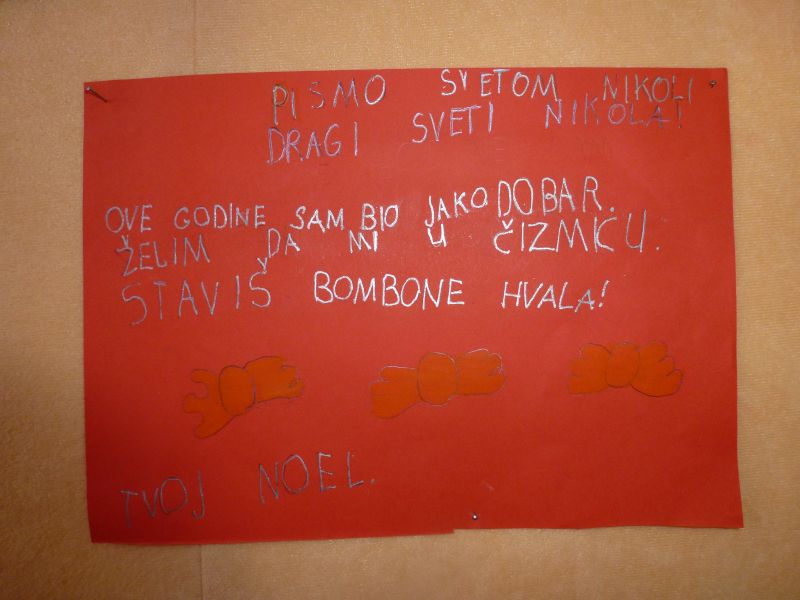 PISMO SVETOM NIKOLI
DRAGI SVETI NIKOLA!
OVE GODINE SAM BIO JAKO DOBAR.
ŽELIM DA MI U ČIZMICU.
STAVIŠ BOMBONE HVALA!
TVOJ NOEL.